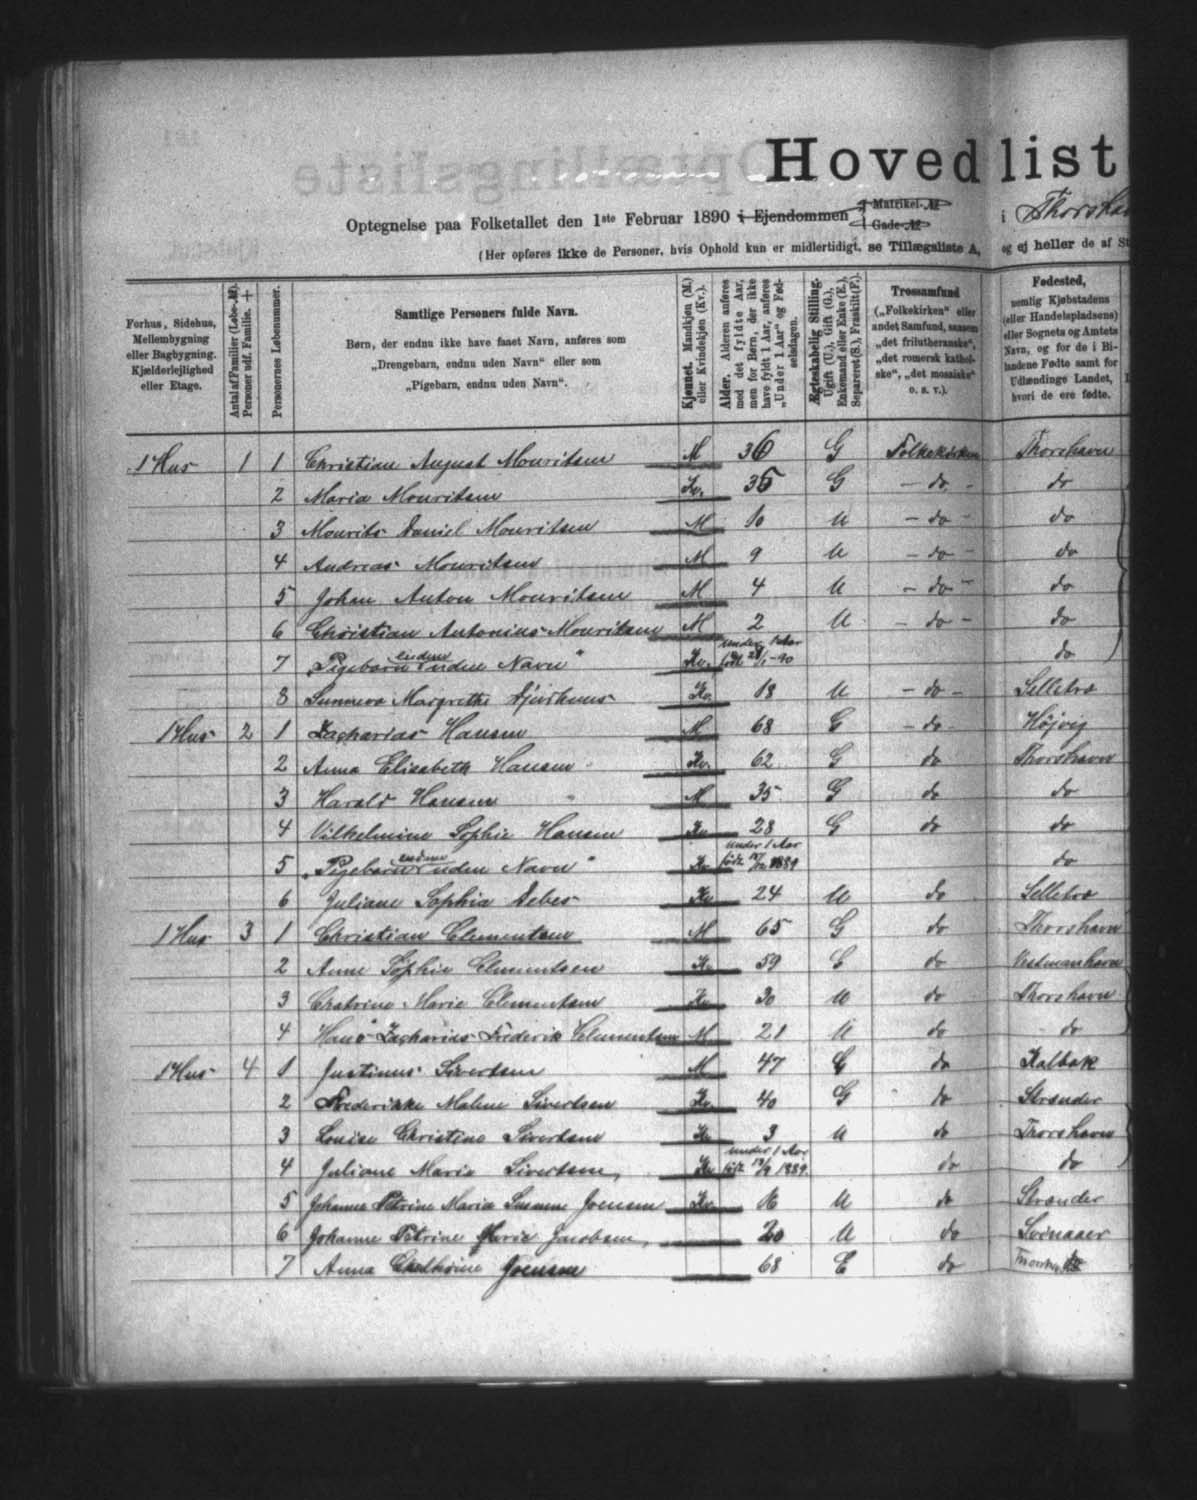 Hovedlist
Optegnelse paa Folketallet den 1ste Februar 1890 i Ejendommen Matrikel-№ Gade-№ i Thorsha
(Her opføres ikke de Personer, hvis Ophold kun er midlertidigt, se Tillægsliste A, og ej heller de af St
Forhus, Sidehus, Mellembygning eller Bagbygning. Kjælderlejlighed eller Etage.
Antal af Familier (Løbe-№). Personer udf. Familie. +
Personernes Løbenummer.
Samtlige Personers fulde Navn.
Børn, der endnu ikke have faaet Navn, anføres som
„Drengebarn, endnu uden Navn“ eller som
„Pigebarn, endnu uden Navn“.
Kjønnet. Mandkjøn (M.) eller Kvindekjøn (Kv.).
Alder. Alderen anføres med det fyldte Aar, men for Børn, der ikke have fyldt 1 Aar, anføres „Under 1 Aar“ og Fødselsdagen.
Ægteskabelig Stilling. Ugift (U.), Gift (G.), Enkemand eller Enke (E.), Separeret (S.), Fraskilt (F.).
Trossamfund („Folkekirken“ eller andet Samfund, saasom „det frilutheranske“, „det romersk katholske“, „det mosaiske“ o. s. v.).
Fødested, nemlig Kjøbstadens (eller Handelspladsens) eller Sognets og Amtets Navn, og for de i Bilandene Fødte samt for Udlændinge Landet, hvori de ere fødte.
1 Hus 1 1 Christian August Mouritsen M 36 G Folkekirken Thorshavn
2 Maria Mouritsen Kv. 35 G - do - do
3 Mourits Daniel Mouritsen M 10 U - do - do
4 Andreas Mouritsen M 9 U - do - do
5 Johan Anton Mouritsen M 4 U - do - do
6 Christian Antonius Mouritsen M 2 U - do - do
7 „Pigebarn endnu uden Navn“ Kv. under 1 Aar født 28/1-90 do
8 Sunneva Margrethe Djurhuus Kv. 18 U - do - Selletræ
1 Hus 2 1 Zacharias Hansen M 68 G - do - Højvig
2 Anna Elisabeth Hansen Kv. 62 G do Thorshavn
3 Harald Hansen M 35 G do do
4 Vilhelmine Sophie Hansen Kv 28 G do do
5 „Pigebarn endnu uden Navn“ Kv under 1 Aar født 1889 do
6 Juliane Sophia Debes Kv 24 U do Selletræ
1 Hus 3 1 Christian Clementsen M 65 G do Thorshavn
2 Anne Sophie Clementsen Kv 59 G do Vestmanhavn
3 Chatrine Marie Clementsen Kv 30 U do Thorshavn
4 Hans Zacharias Frederik Clementsen M 21 U do do
1 Hus 4 1 Justinus Sivertsen M 47 G do Kalbak
2 Frederikke Malene Sivertsen Kv. 40 G do Strænder
3 Louise Christine Sivertsen Kv 3 U do Thorshavn
4 Juliane Maria Sivertsen Kv under 1 Aar født 13/9 1889. do do
5 Johanne Petrine Maria Susanne Joensen Kv. 16 U do Strænder
6 Johanne Petrine Maria Jacobsen 20 U do
7 Anna Joensen 68 E do